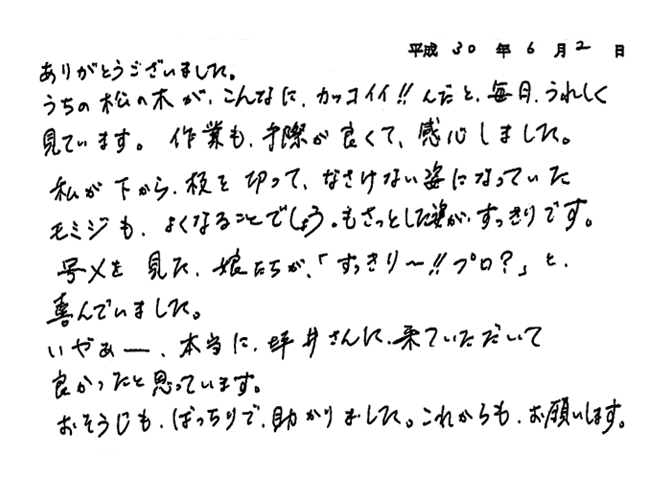 平成 30 年 6 月 2 日
ありがとうございました。
うちの松の木が、こんなに、カッコイイ!!んだと、毎日、うれしく
見ています。作業も、手際が良くて、感心しました。
私が下から、枝を切って、なさけない姿になっていた
モミジも、よくなることでしょう。もさっとした姿が、すっきりです。
を見た、娘たちが、「すっきり〜!!プロ?」と、
喜んでいました。
いやぁー、本当に、坪井さんに、来ていただいて
良かったと思っています。
おそうじも、ばっちりで、助かりました。これからも、お願いします。